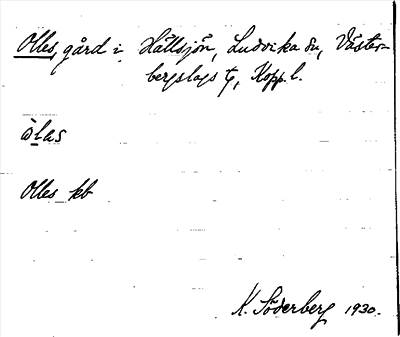 Olles, gård i Hällsjön, Ludvika sn, Väster-
bergslags tg, Kopp. l.
òlas
Olles kb
K. Söderberg 1930.